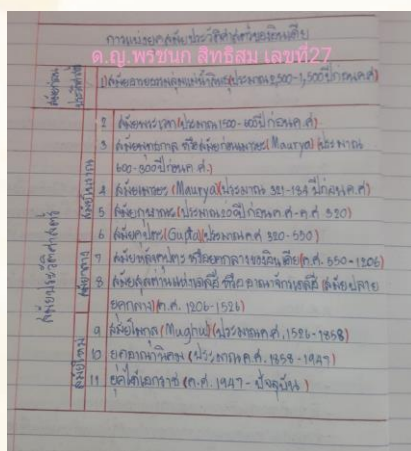 การแบ่งยุคสมัยประวัติศาสตร์ของอินเดีย
ด.ญ.พรชนก สิทธิสม เลขที่27
สมัยก่อนประวัติศาสตร์
1) สมัยอารยธรรมลุ่มแม่น้ำสินธุ (ประมาณ 2,500-1,500 ปีก่อนค.ศ)
สมัยประวัติศาสตร์
สมัยโบราณ
2 สมัยพระเวท (ประมาณ 1500-600 ปีก่อนค.ศ)
3 สมัยพุทธกาล หรือสมัยก่อนเมารยะ (Maurya) (ประมาณ
600-300 ปีก่อน ค.ศ.)
4 สมัยเมารยะ (Maurya) (ประมาณ 321-184 ปีก่อน ค.ศ)
5 สมัยกุษาณะ (ประมาณ 200 ปีก่อน ค.ศ-ค.ศ 320)
6 สมัยคุปตะ (Gupta) (ประมาณค.ศ 320-550)
สมัยกลาง
7 สมัยหลังคุปตะ หรือยุคกลางของอินเดีย (ค.ศ. 550-1206)
8 สมัยสุลต่านแห่งเดลฮี หรือ อาณาจักรเดลฮี (สมัยปลาย
ยุคกลาง) (ค.ศ. 1206-1526)
สมัยใหม่
9 สมัยโมกุล (Mughul) (ประมาณค.ศ. 1526-1858)
10 ยุคอาณานิคม (ประมาณ ค.ศ. 1858-1947)
11 ยุคได้เอกราช (ค.ศ. 1947-ปัจจุบัน)